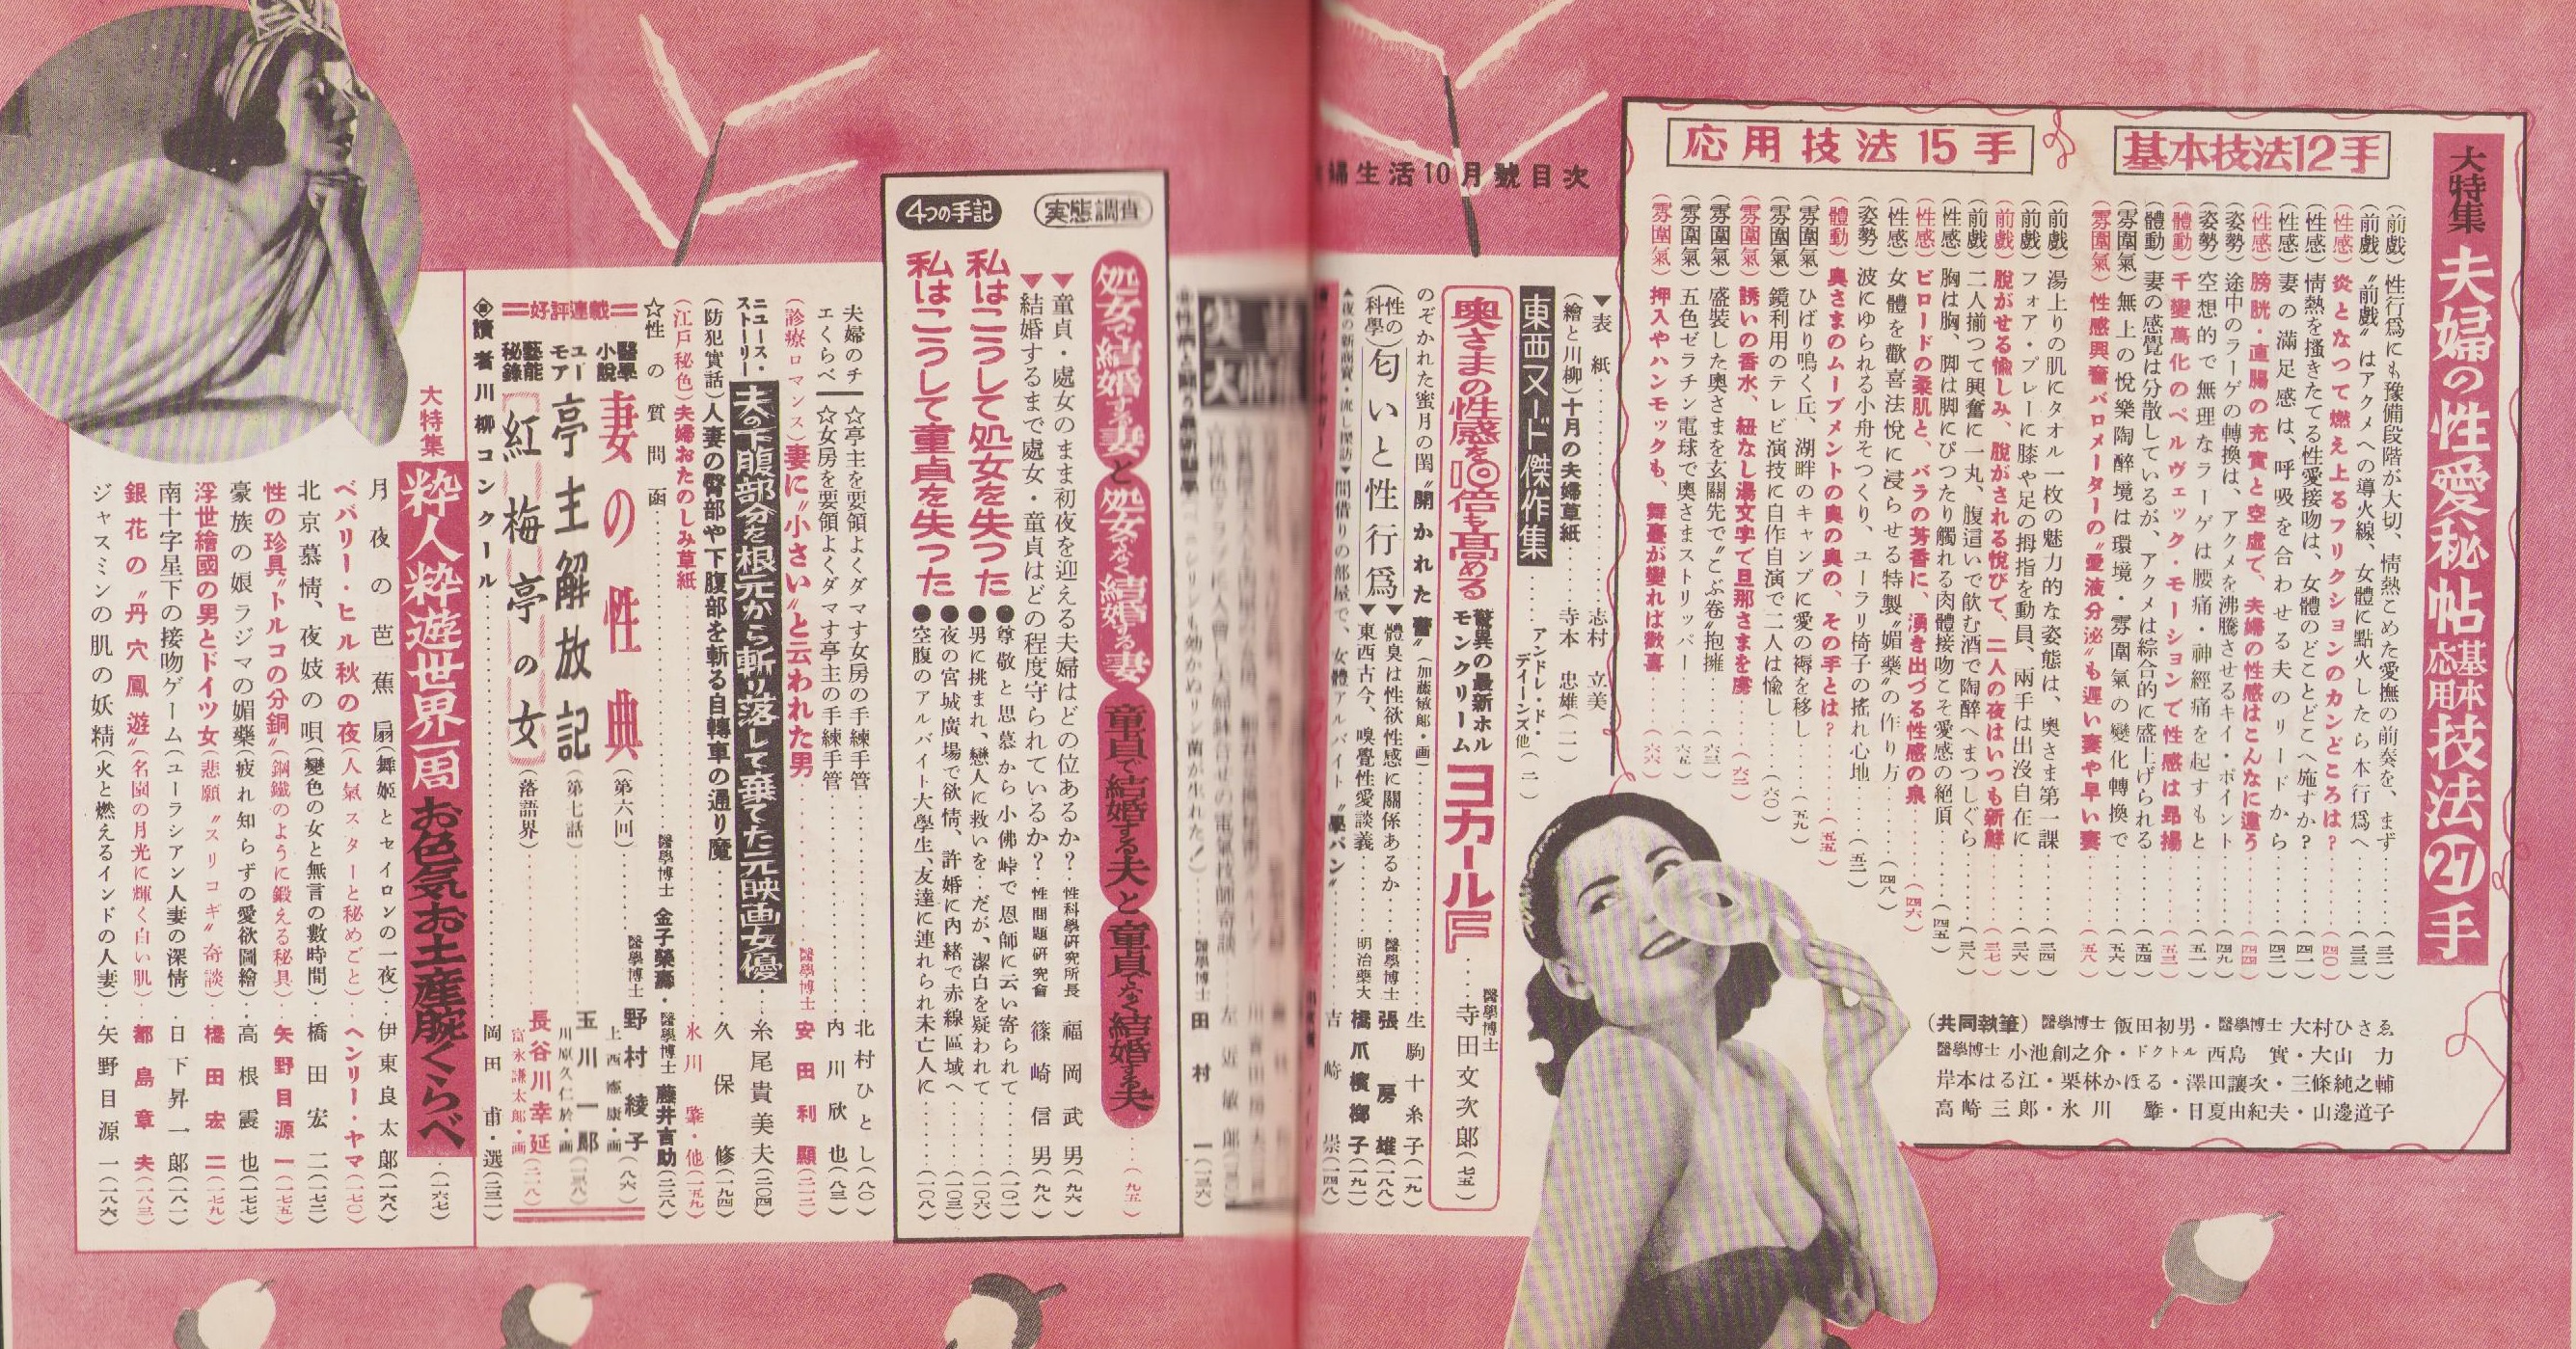 大特集 夫婦の性愛秘帖 基本応用 技法27手
基本技法12手
(前戯) 性行爲にも豫備段階が大切、情熱こめた愛撫の前奏を、まず……(三二)
(前戯) 〝前戯〟はアクメへの導火線、女體に點火したら本行爲へ……(三三)
(性感) 炎となつて燃え上るフリクションのカンどころは?……(四〇)
(性感) 情熱を掻きたてる性愛接吻は、女體のどことどこへ施すか?……(四一)
(性感) 妻の滿足感は、呼吸を合わせる夫のリードから……(四二)
(性感) 膀胱・直腸の充實と空虚で、夫婦の性感はこんなに違う……(四四)
(姿勢) 途中のラーゲの轉換は、アクメを沸騰させるキイ・ポイント……(四九)
(姿勢) 空想的で無理なラーゲは腰痛・神經痛を起すもと……(五一)
(體動) 千變萬化のペルヴェック・モーションで性感は昂揚……(五三)
(體動) 妻の感覺は分散しているが、アクメは綜合的に盛上げられる……(五四)
(雰圍氣) 無上の悅樂陶醉境は環境・雰圍氣の變化轉換で……(五六)
(雰圍氣) 性感興奮バロメーターの〝愛液分泌〟も遲い妻や早い妻……(五八)
応用技法15手
(前戯) 湯上りの肌にタオル一枚の魅力的な姿態は、奥さま第一課……(三四)
(前戯) フォア・プレーに膝や足の拇指を動員、兩手は出沒自在に……(三六)
(前戯) 脫がせる愉しみ、脫がされる悅びて、二人の夜はいつも新鮮……(三七)
(前戯) 二人揃つて興奮に一丸、腹這いで飲む酒で陶醉へまつしぐら……(三八)
(性感) 胸は胸、脚は脚にぴつたり觸れる肉體接吻こそ愛感の絶頂……(四五)
(性感) ビロードの柔肌と、バラの芳香に、湧き出づる性感の泉……(四六)
(性感) 女體を歡喜法悅に浸らせる特製〝媚藥〟の作り方……(四八)
(姿勢) 波にゆられる小舟そつくり、ユーラリ椅子の搖れ心地……(五二)
(體動) 奥さまのムーブメントの奥の奥の、その手とは?……(五五)
(雰圍氣) ひばり鳴く丘、湖畔のキャンプに愛の褥を移し……(五九)
(雰圍氣) 鏡利用のテレビ演技に自作自演で二人は愉し……(六〇)
(雰圍氣) 誘いの香水、紐なし湯文字で旦那さまを虜……(六二)
(雰圍氣) 盛裝した奥さまを玄關先で〝こぶ卷〟抱擁……(六三)
(雰圍氣) 五色ゼラチン電球で奥さまストリッパー……(六五)
(雰圍氣) 押入やハンモックも、舞臺が變れば歡喜……(六六)
(共同執筆) 醫學博士 飯田初男・醫學博士 大村ひさゑ
醫學博士 小池創之介・ドクトル 西島 實・大山 力
岸本はる江・栗林かほる・澤田讓次・三條純之輔
高崎三郎・氷川 肇・日夏由紀夫・山邊道子
婦生活10月號目次
▼表 紙……志村 立美
(繪と川柳) 十月の夫婦草紙……寺本 忠雄(一)
東西ヌード傑作集……アンドレ・ド・ディーンズ他(二)
奥さまの性感を10倍も高める 驚異の最新ホルモンクリーム ヨカールF……醫學博士 寺田文次郎(七五)
のぞかれた蜜月の閨〝開かれた窗〟(加藤敏郎・画)……生駒十糸子(一九)
(性の科學) 匂いと性行爲
▼體臭は性欲性感に關係あるか……醫學博士 張 房雄(一八八)
▼東西古今、嗅覺性愛談義……明治藥大 橋爪檳榔子(一九一)
間借りの部屋で、女體アルバイト〝學パン〟……吉崎 崇(一四八)
醫學博士 田村 一(一三六)
実態調査
処女で結婚する妻と処女でなく結婚する妻 童貞で結婚する夫と童貞でなく結婚する夫……(九五)
▼童貞・處女のまま初夜を迎える夫婦はどの位あるか?……性科學研究所長 福岡武男(九六)
▼結婚するまで處女・童貞はどの程度守られているか?……性問題研究會 篠崎信男(九八)
4つの手記
私はこうして処女を失つた
私はこうして童貞を失つた
●尊敬と思慕から小佛峠で恩師に云い寄られて……(一〇一)
●男に挑まれ、戀人に救いを‥だが、潔白を疑われて……(一〇六)
●夜の宮城廣場で欲情、許婚に内緒で赤線區域へ……(一〇三)
●空腹のアルバイト大學生、友達に連れられ未亡人に……(一〇八)
夫婦のチエくらべ
☆亭主を要領よくダマす女房の手練手管……北村ひとし(八〇)
☆女房を要領よくダマす亭主の手練手管……内川欣也(八三)
(診療ロマンス) 妻に〝小さい〟と云われた男……醫學博士 安田利顯(二一二)
ニュース・ストーリー 夫の下腹部分を根元から斬り落して棄てた元映画女優……糸尾貴美夫(二〇四)
(防犯實話) 人妻の臀部や下腹部を斬る自轉車の通り魔……久保 修(一九四)
(江戸秘色) 夫婦おたのしみ草紙……氷川 肇・他(一五九)
☆性の質問函……醫學博士 金子榮壽・醫學博士 藤井吉助(二二八)
=好評連載=
醫學小說 妻の性典(第六回)……醫學博士 野村綾子 上西憲康・画(八六)
ユーモア 亭主解放記(第七話)……玉川一郎 川原久仁於・画(一三八)
藝能秘錄 紅梅亭の女(落語界)……長谷川幸延 富永謙太郎・画(二一八)
讀者川柳コンクール……岡田 甫・選(二三一)
大特集 粋人粋遊世界一周 お色気お土産腕くらべ……(一六七)
月夜の芭蕉扇(舞姫とセイロンの一夜)‥伊東良太郎(一六八)
ベバリー・ヒル秋の夜(人氣スターと秘めごと)‥ヘンリー・ヤマ(一七〇)
北京慕情、夜妓の唄(變色の女と無言の數時間)‥橋田宏二(一七二)
性の珍具〝トルコの分銅〟(鋼鐵のように鍛える秘具)‥矢野目源一(一七五)
豪族の娘ラジマの媚藥(疲れ知らずの愛欲圖繪)‥高根震也(一七七)
浮世繪國の男とドイツ女(悲願〝スリコギ〟奇談)‥橘田宏二(一七九)
南十字星下の接吻ゲーム(ユーラシアン人妻の深情)‥日下昇一郎(一八一)
銀花の〝丹穴鳳遊〟(名園の月光に輝く白い肌)‥都島章夫(一八三)
ジャスミンの肌の妖精(火と燃えるインドの人妻)‥矢野目源一(一八六)